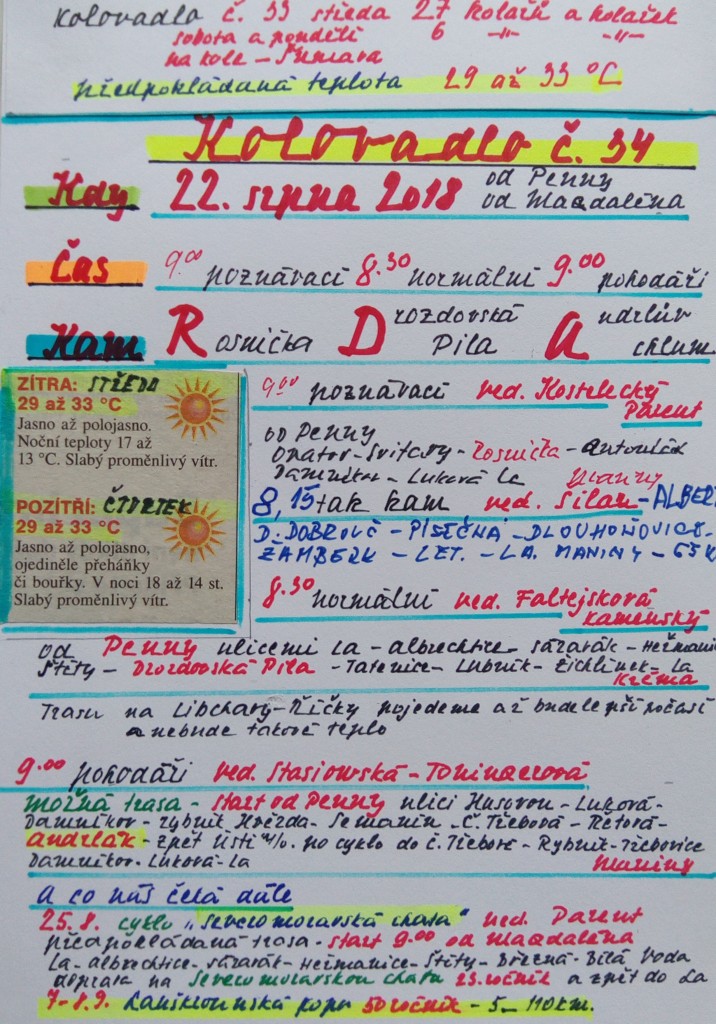 Kolovadlo č. 33 středa 27 kolařů a kolařek
sobota a pondělí 6 -"- -"-
na kole - Šumava
předpokládaná teplota 29 až 33 °C
Kolovadlo č. 34
Kdy 22. srpna 2018 od Penny
od Magdaléna
Čas 9.00 poznávací 8.30 normální 9.00 pohodáři
Kam Rosnička Drozdovská Pila Andrlův chlum
ZÍTRA: STŘEDA
29 až 33 °C
Jasno až polojasno.
Noční teploty 17 až
13 °C. Slabý proměnlivý vítr.
POZÍTŘÍ: ČTVRTEK
29 až 33 °C
Jasno až polojasno,
ojediněle přeháňky
či bouřky. V noci 18 až 14 st.
Slabý proměnlivý vítr.
9.00 poznávací ved. Kostelecký
Parent
od Penny
Opatov - Svitavy - Rosnička -
Damníkov - Luková La Maniny
8,15 tak kam ved. Silan - ALBER
D. DOBROUČ - PÍSEČNÁ - DLOUHOŇOVICE -
ŽAMBERK - LET. - LA. MANINY - 65 K
8.30 normální ved. Faltejsková
Kamenský
od Penny ulicemi La - albrechtice - sázavák - Heřmani
Štíty - Drozdovská Pila - Tatenice - Lubník - Žichlínek - La
Kréma
Trasu na Libchavy - Říčky pojedeme až bude lepší počasí
a nebude takové teplo
9.00 pohodáři ved. Stasiowská -
možná trasa - start od Penny ulici Husovou - Luková -
Damníkov - rybník Hvězda - Semanín - Č. Třebová - Řetová -
Andrlák - zpět Ústí n/o. po cyklo do č. Třebové - Rybník - Třebovice
Damníkov - Luková - La Maniny
A co nás čeká dále
25.8. cyklo "Severomoravská chata" ved. Parent
předpokládaná trasa - start 9.00 od Magdaléna
La - albrechtice - sázavák - Heřmanice - Štíty - Březná - Bílá Voda
doprava na Severomoravskou chatu 23. ročník a zpět do La
7-8.9. Lanškrounská kopa 50 ročník - 5 - 110 km.